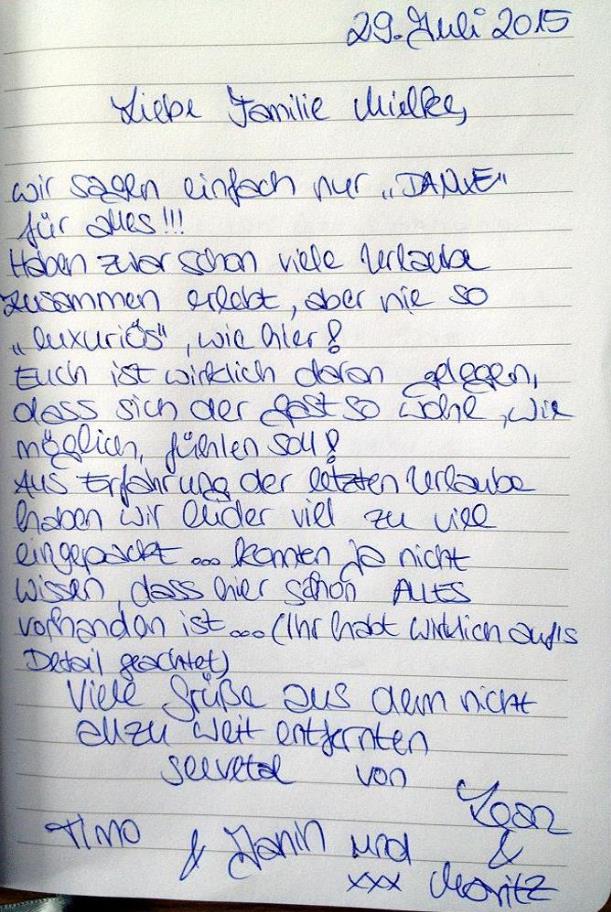 29. Juli 2015
Liebe Familie Mielke,
wir sagen einfach nur „DANKE"
für alles!!!
Haben zwar schon viele Urlaube
zusammen erlebt, aber nie so
„luxuriös", wie hier!
Euch ist wirklich daran gelegen,
dass sich der Gast so wohl, wie
möglich, fühlen soll!
Aus Erfahrung der letzten Urlaube
haben wir leider viel zu viel
eingepackt... konnten ja nicht
wissen, dass hier schon ALLES
vorhanden ist... (Ihr habt wirklich aufs
Detail geachtet)
Viele Grüße aus dem nicht
allzu weit entfernten
Seevetal von
Timo & Janin und Lean &
xxx Moritz